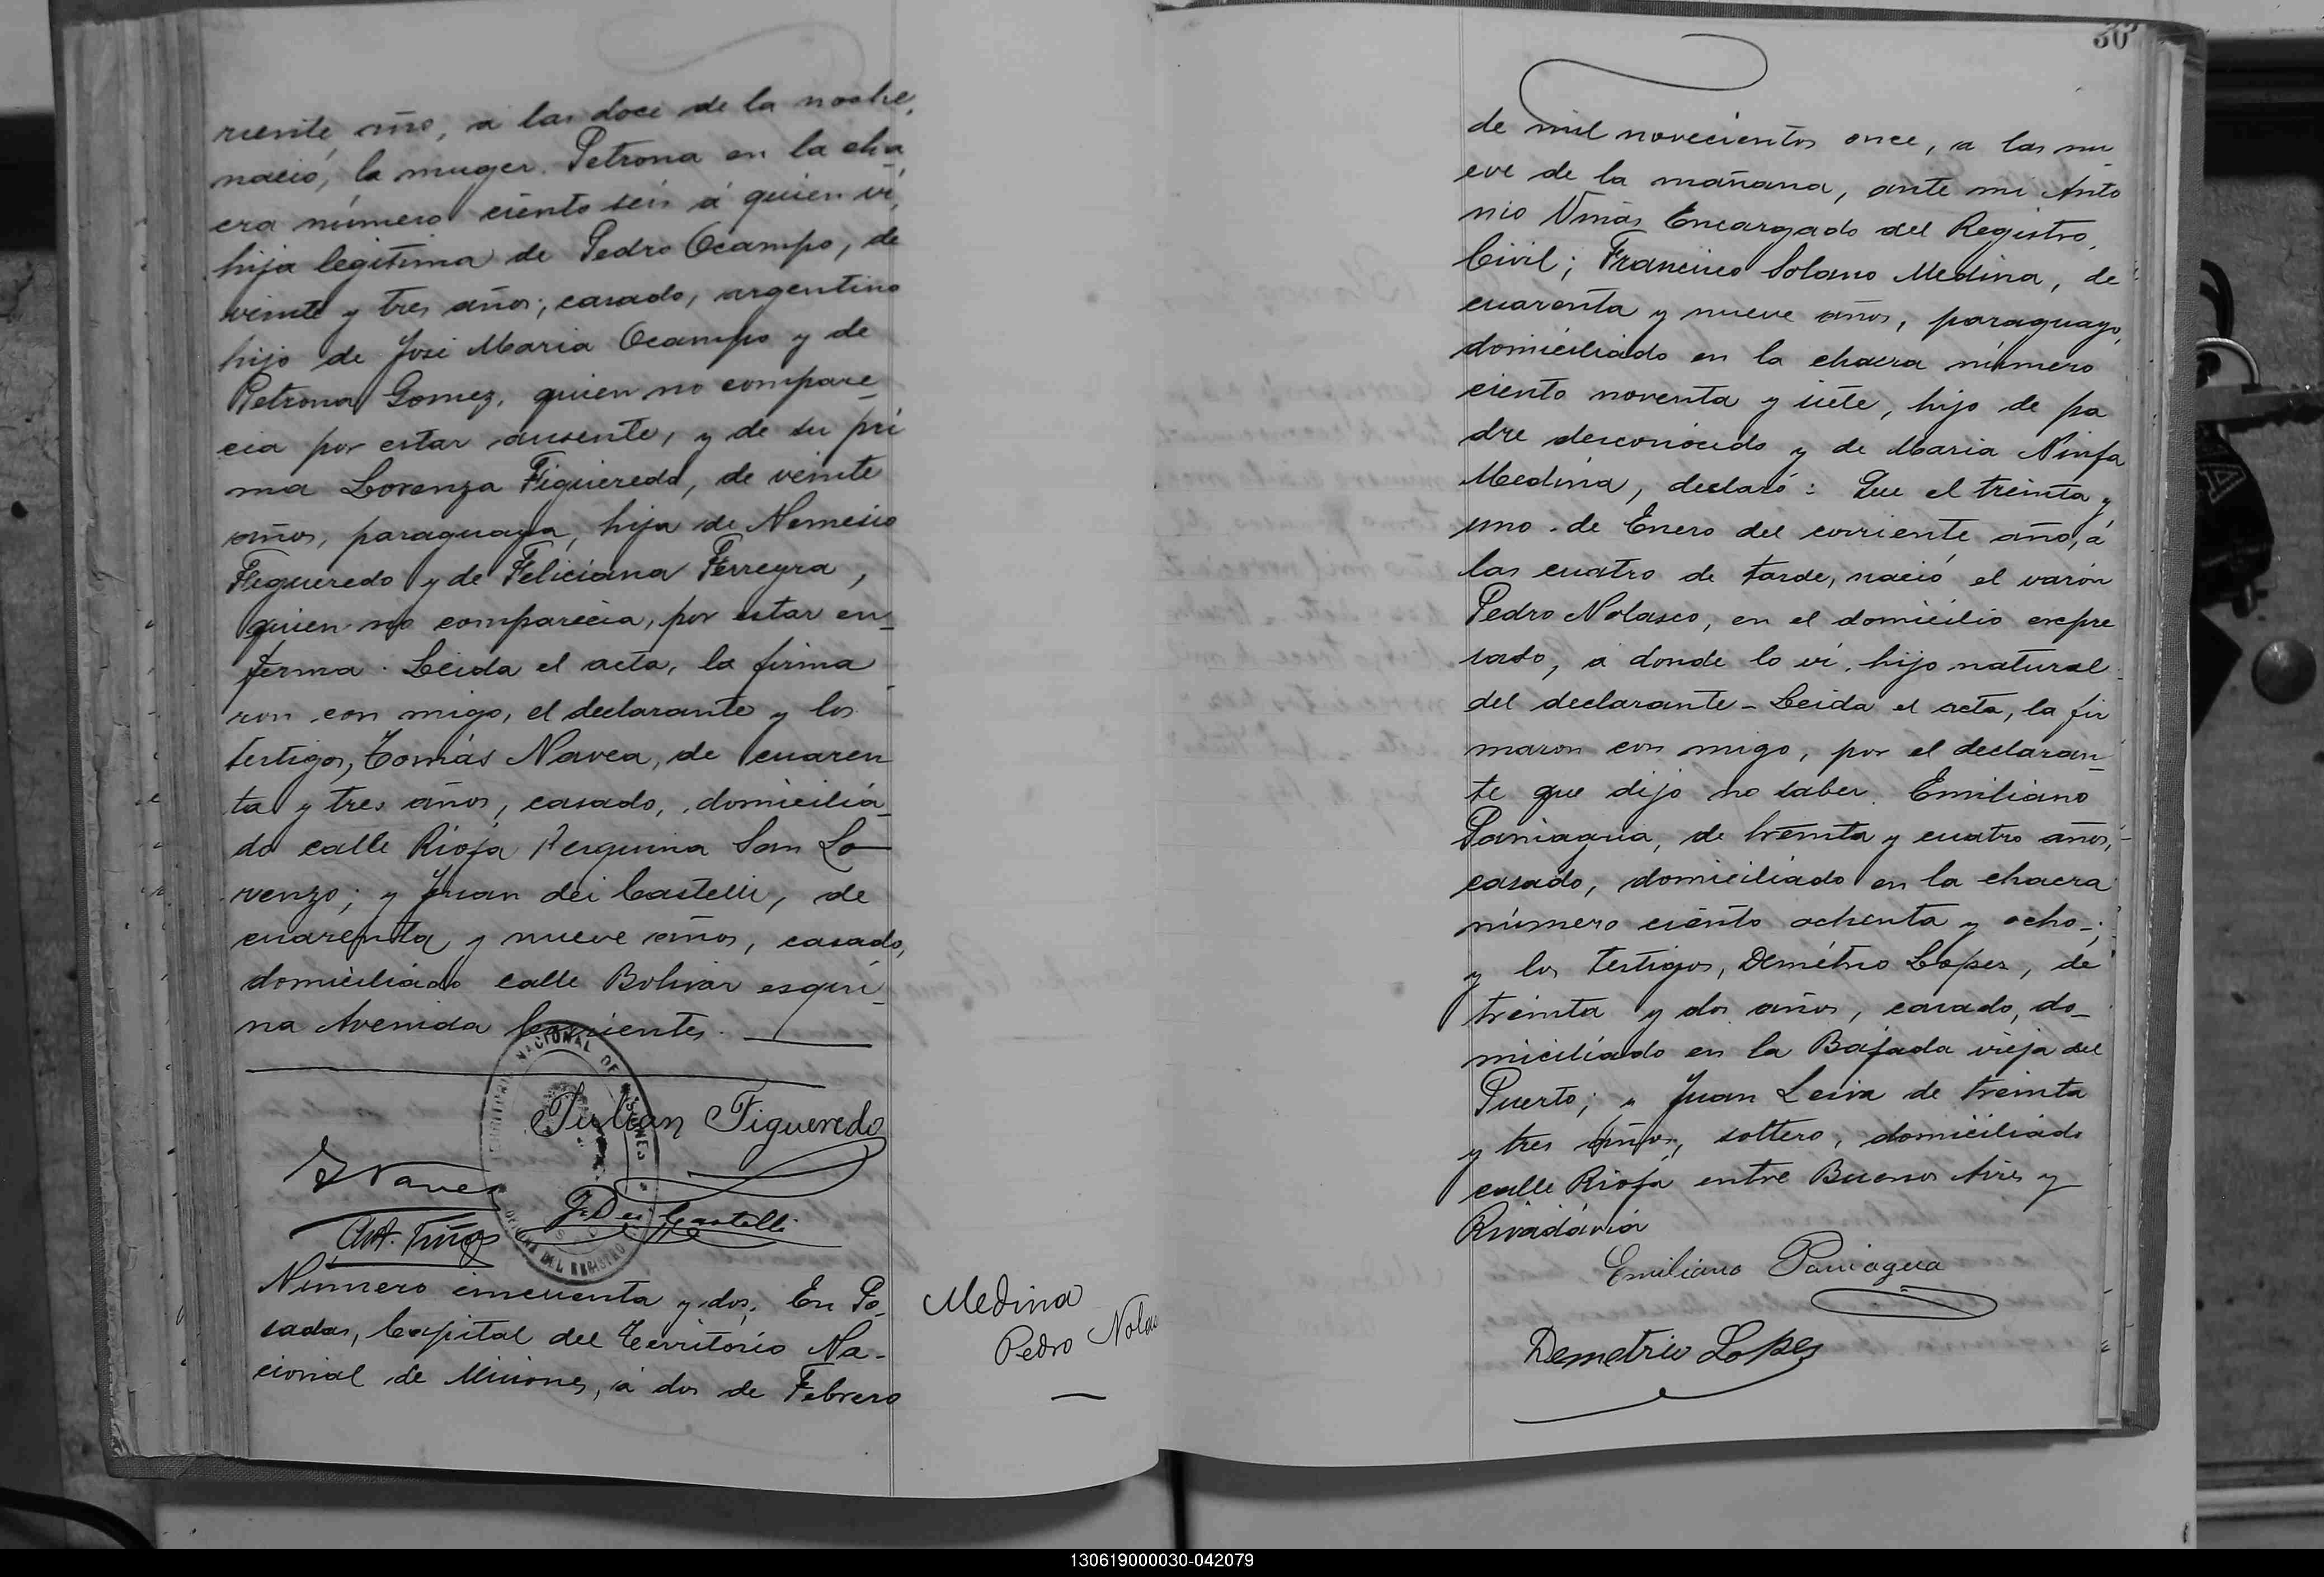 riente año, a las doce de la noche,
nació, la muger Petrona en la cha
cra número ciento seis á quien ví,
hija legitima de Pedro Ocampo, de
veinte y tres años, casado, argentino
hijo de José Maria Ocampo y de
Petrona Gomez, quien no compare
cia por estar ausente, y de su pri
ma Lorenza Figueredo, de veinte
años, paraguaya, hija de Nemesio
Figueredo y de Feliciana Ferreyra,
quien no comparecia, por estar en_
ferma. Leida el acta, la firma
ron con migo, el declarante y los
testigos, Tomás Navea, de cuaren
ta y tres años, casado, domicilia_
do calle Rioja esquina San Lo
renzo; y Juan dei Castelli, de
cuarenta y nueve años, casado,
domiciliado calle Bolivar esqui_
na Avenida Corrientes.
TERRITORIO NACIONAL DE MISIONES
OFICINA DEL REGISTRO
Julian Figueredo
J. Dei Castelli
Número cincuenta y dos. En Po_
sadas, Capital del Territorio Na-
cional de Misiones, á dos de Febrero
Medina
Pedro Nolas
30
de mil novecientos once, a las nu
eve de la mañana, ante mi Anto
nio Encargado del Registro
Civil; Francisco Solano Medina, de
cuarenta y nueve años, paraguayo,
domiciliado en la chacra número
ciento noventa y siete, hijo de pa
dre desconocido y de Maria Ninfa
Medina, declaró: Que el treinta y
uno de Enero del corriente año, á
las cuatro de tarde, nació el varón
Pedro Nolasco, en el domicilio expre
sado, á donde lo ví, hijo natural
del declarante - Leida el acta, la fir
maron con migo, por el declaran_
te que dijo no saber Emiliano
Paniagua, de treinta y cuatro años,
casado, domiciliado en la chacra
número ciento ochenta y ocho-;
y los testigos, Demétrio Lopez, de
treinta y dos años, casado, do_
miciliado en la Bajada vieja del
Puerto; y Juan Leiva de treinta
y tres años, soltero, domiciliado
calle Rioja entre Buenos Aires y
Rivadavia
Emiliano Paniagua
Demetrio Lopez
130619000030-042079